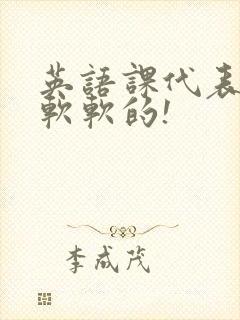 英語課代表
軟軟的!
李成茂